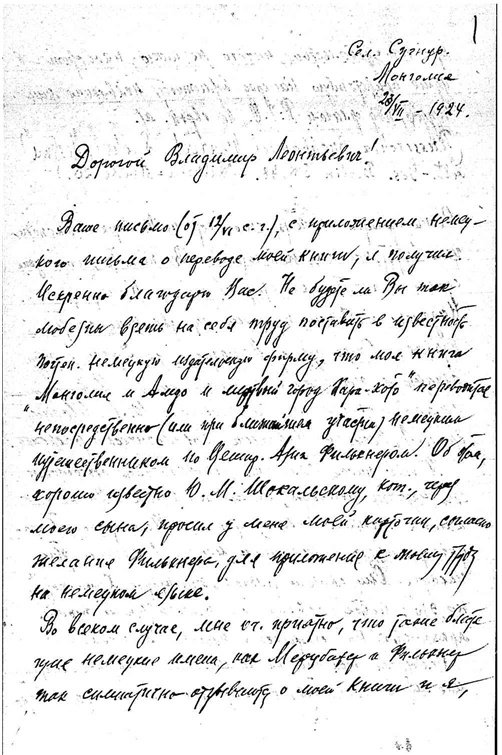 1
Сел. Сугнур.
Монголия
23/VII – 1924.
Дорогой Владимир Леонтьевич!
Ваше письмо (от 12/VI с. г.), с приложением немец-
кого письма о переводе моей книги, я получил.
Искренно благодарю Вас. Не будете ли Вы так
любезны взять на себя труд поставить в известность
немецкую издательскую фирму, что моя книга
"Монголия и Амдо и мертвый город Хара-Хото" переводится
непосредственно (или при ближайшем участии) немецким
путешественником по Центр. Азии Фильхнером. Об этом,
хорошо известно Ю. М. Шокальскому, кот., через
моего сына, просил у меня моей карточки, согласно
желания Фильхнера, для приложения к моему труду
на немецком языке.
Во всяком случае, мне приятно, что такие
немецкие имена, как Мерцбахер и Фильхнер
так симпатично отзываются о моей книге и я,